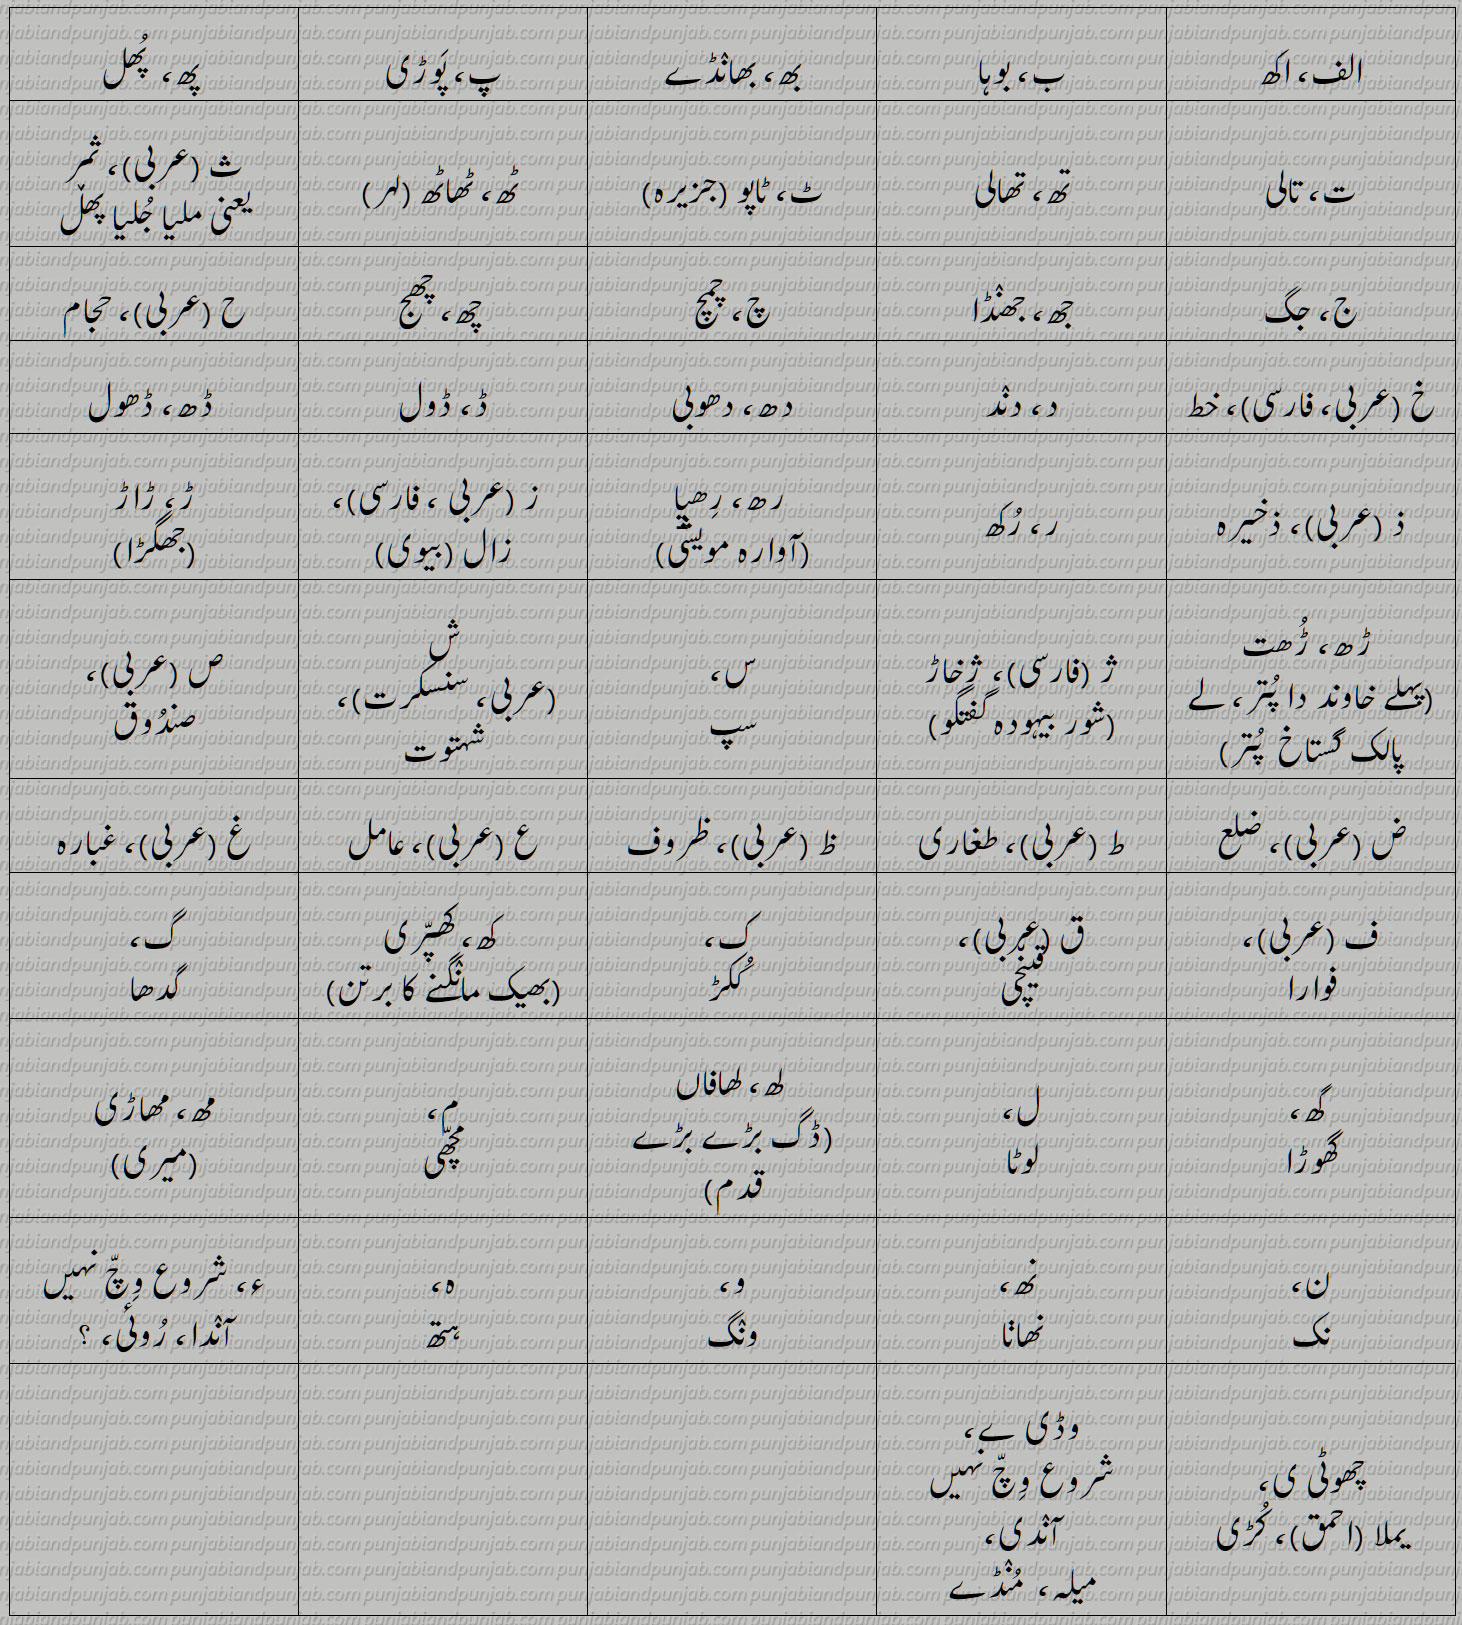 الف، اکھ
ب، بوہا
بھ، بھانڈے
پ، پَوڑی
پھ، پُھل
ت، تالی
تھ، تھالی
ٹ، ٹاپو (جزیرہ)
ٹھ، ٹھاٹھ (لہر)
ث (عربی)، ثمر
یعنی ملیا جُلیا پھل
ج، جگ
جھ، جھنڈا
چ، چمچ
چھ، چھج
ح (عربی)، حجام
خ (عربی، فارسی)، خط
د، دند
دھ، دھوبی
ڈ، ڈول
ڈھ، ڈھول
ذ (عربی)، ذخیرہ
ر، رُکھ
رھ، رِھیا
(آوارہ مویشی)
ز (عربی ، فارسی)،
زال (بیوی)
ڑ، ڑاڑ
(جھگڑا)
ڑھ، ڑُھت
(پہلے خاوند دا پُتر، لے
پالک گستاخ پُتر)
ژ (فارسی)، ژخاڑ
(شور بیہودہ گفتگو)
س،
سپ
ش
(عربی، سنسکرت)،
شہتوت
ص (عربی)،
صندُوق
ض (عربی)، ضلع
ط (عربی)، طغاری
ظ (عربی)، ظروف
ع (عربی)، عامل
غ (عربی)، غبارہ
ف (عربی)،
فوارا
ق (عربی)،
قینچی
ک،
کُکڑ
کھ، کھپّری
(بھیک مانگنے کا برتن)
گ،
گدھا
گھ،
گھوڑا
ل،
لوٹا
لھ، لھافاں
(ڈگ بڑے بڑے
قدم)
م،
مچھّی
مھ، مھاڑی
(میری)
ن،
نک
نھ،
نھانا
و،
ونگ
ہ،
ہتھ
ء، شروع وِچّ نہیں
آندا، رُوئی، ؟
چھوٹی ی،
یملا (احمق)، کُڑی
وڈی ے،
شروع وِچّ نہیں
آندی،
میلہ، مُنڈے